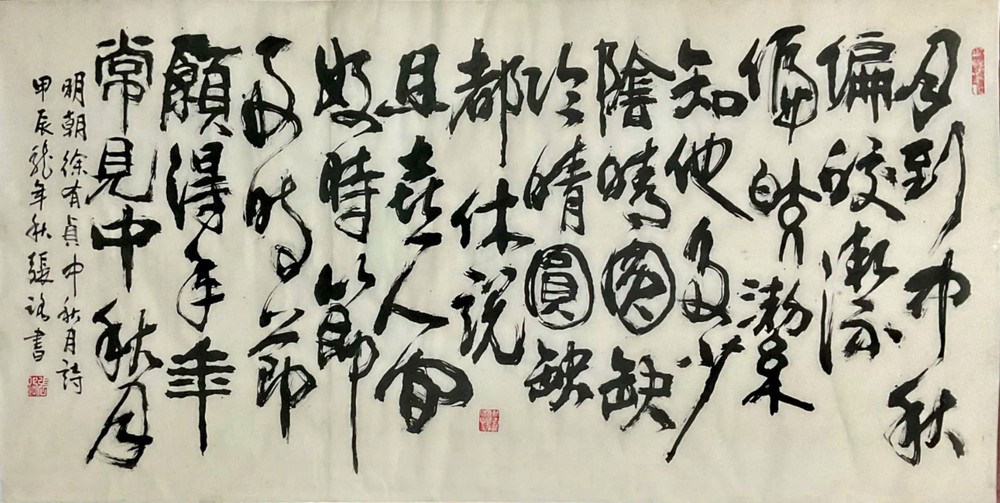 月到中秋
偏皎潔
偏皎潔
知他多少
陰晴圓缺
陰晴圓缺
都休說
且喜人間
好時節
好時節
願得年年
常見中秋月
明朝徐有貞中秋月詩
甲辰龍年秋張洺書